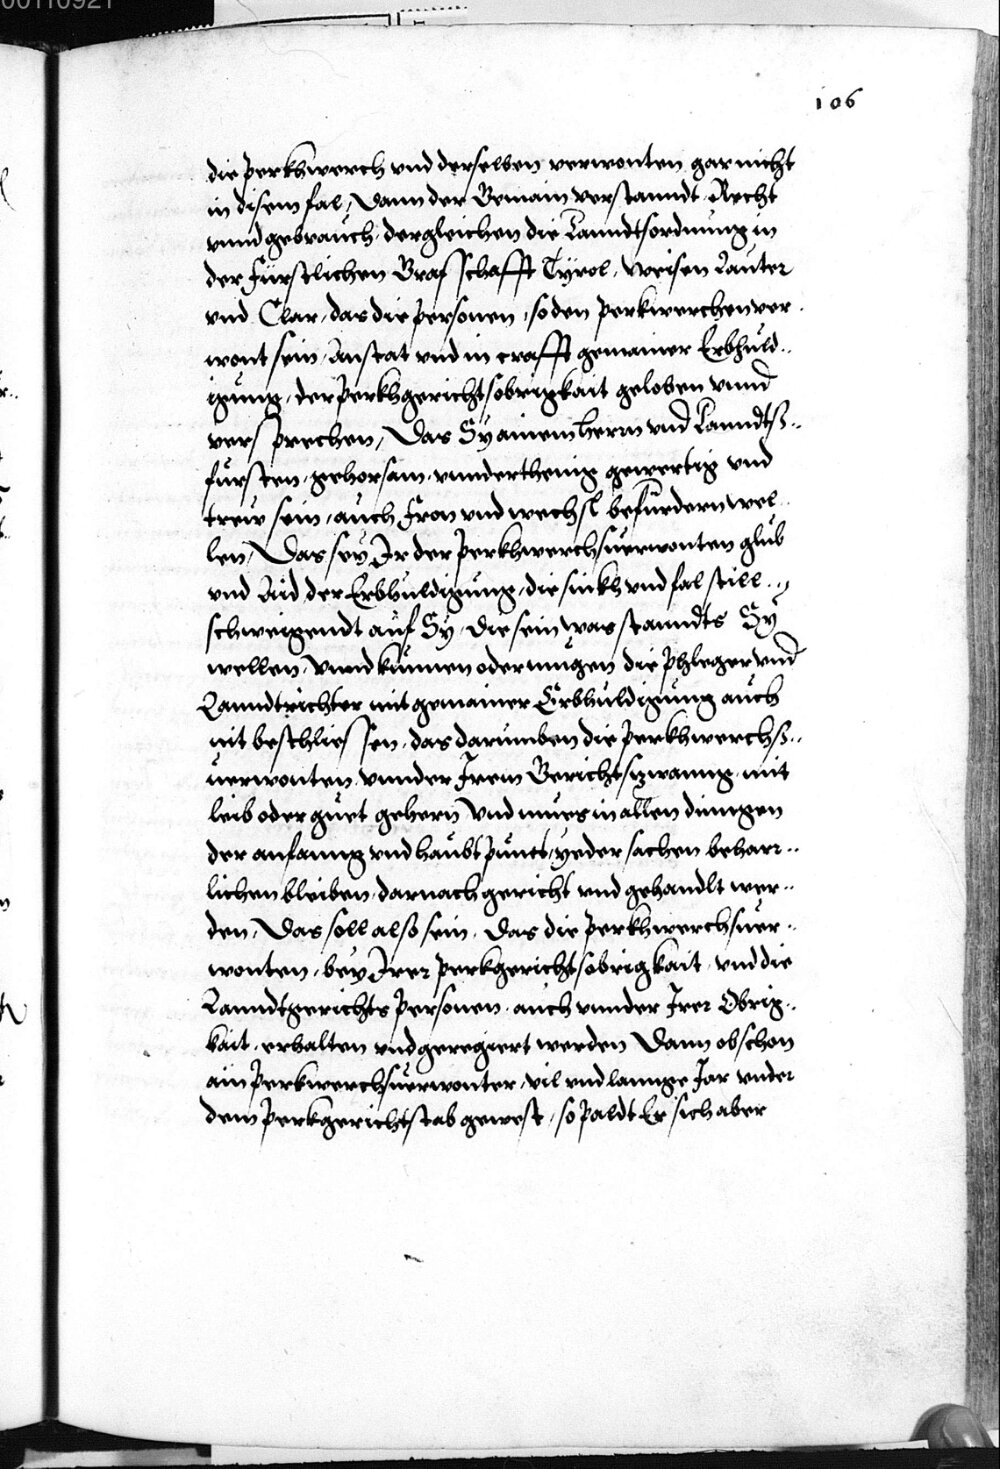 00110921
106
die Perkhwerch vnd derselben verwonten gar nicht
in disem fal, Dann der Gemain verstanndt, Recht
vnnd gebrauch, dergleichen die Lanndtsordnung in
der Fürstlichen Grafschafft Tyrol, weisen Lauter
vnd Clar, das die personen, so den Perkwerchen ver
wont sein, Anstat vnd in crafft gemainer Erbhuld..
igung, der Perkhgerichtsobrigkait geloben vnnd
versprechen, Das Sy ainem herrn vnd Lanndts..
fürsten, gehorsam, vnnderthenig gewertig vnd
trew sein, auch Fron vnd wechsl befürdern wel..
len, Das sey Ir der Perkhwerchsuerwonten glüb
vnd Aid der Erbhuldigung, die sinkh vnd fal still..
schweigendt auf Sy, die sein was stanndts Sy
wellen, Vnnd künnen oder mügen die Phleger vnd
Lanndtrichter mit gemainer Erbhuldigung auch
nit beschliessen, das darumben die Perkhwerchs..
uerwonten vnnder Irem Gerichtszwanng, mit
leib oder guet gehern, Vnd mues in allen dinngen
der anfanng vnd haubt punct, yeder sachen beharr..
lichen bleiben, darnach gericht vnd gehandlt wer..
den, Das soll also sein, Das die Perkhwerchsuer..
wonten, bey Irer Perkgerichtsobrigkait, vnd die
Lanndtgerichts Personen, auch vnnder Irer Obrig..
kait, erhalten vnd geregiert werden, Dann ob schon
ain Perkwerchsuerwonter, vil vnd lannge Jar vnder
dem Perkgerichtstab gewest, so paldt Er sich aber